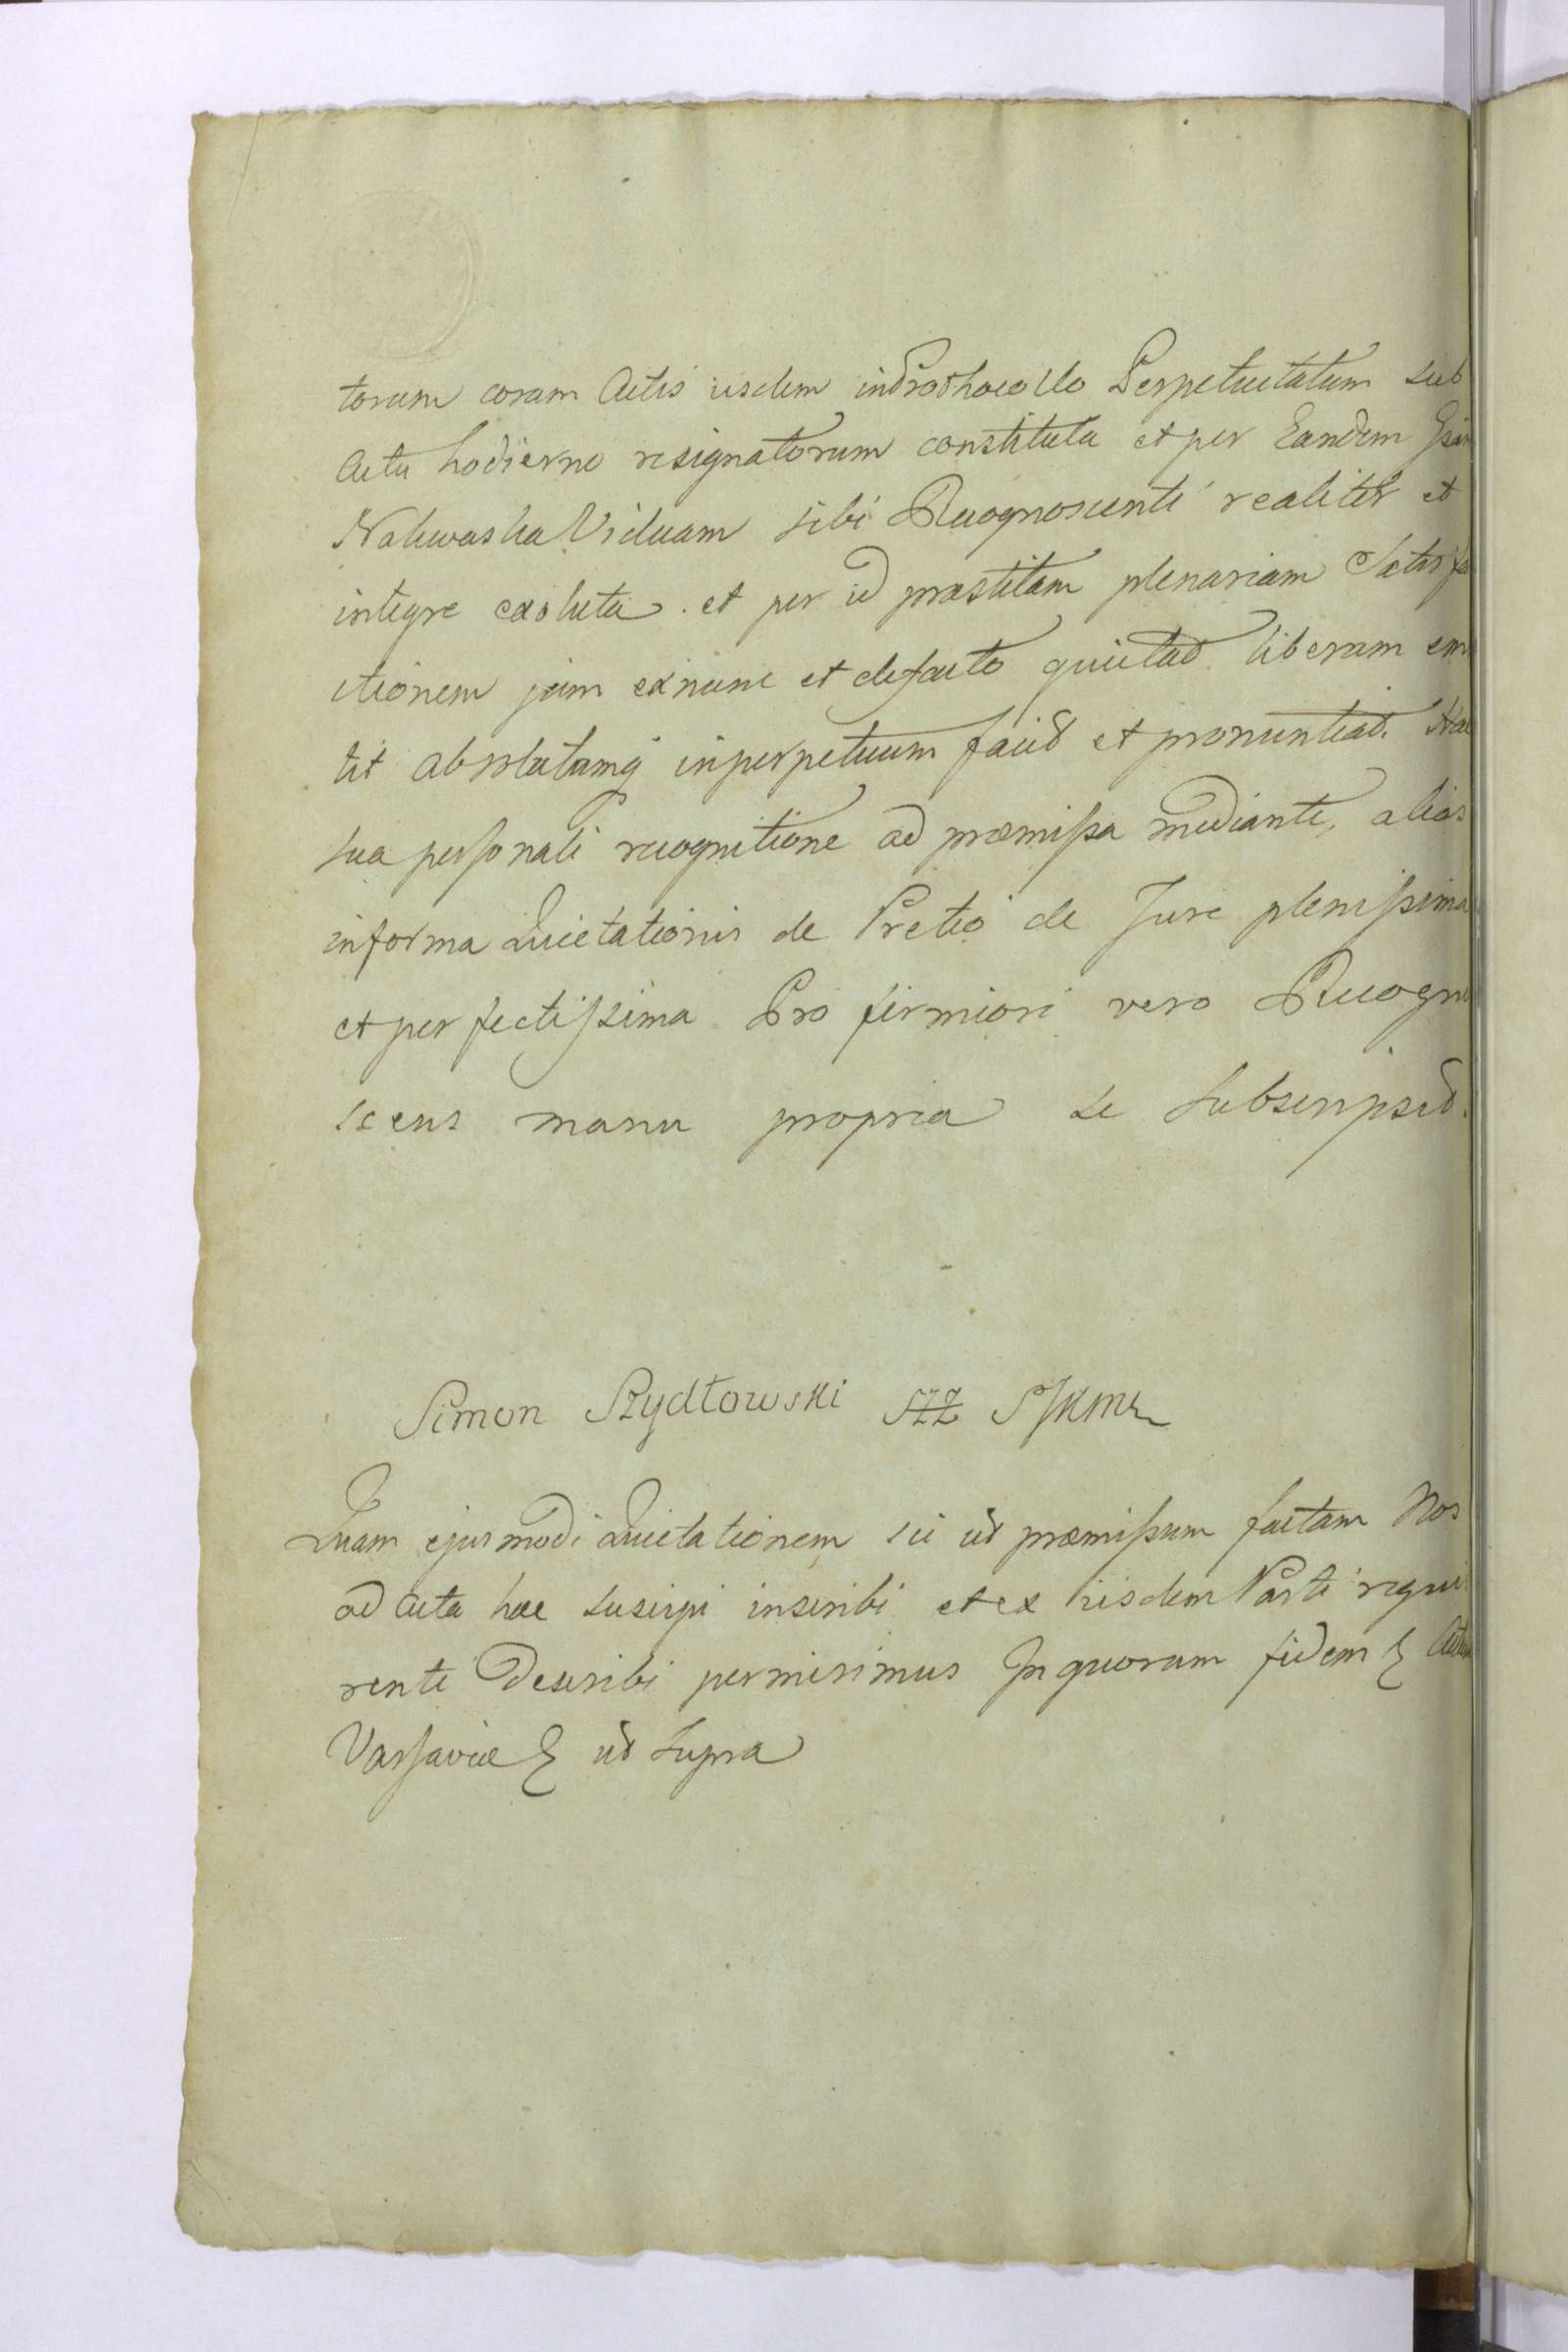 torum coram Actis iisdem in Prothocollo Perpetuitatum sub
Actu hodierno resignatorum constituta et per Eandem Gsam
Nakwaska Viduam sibi Recognoscenti realiter et
integre exoluta. et per id præstitam plenariam Satisfa
ctionem jam exnunc et defacto quietat liberam emi
tit absolutamq inperpetuum facit et pronuntiat. Hac
sua personali recognitione ad præmissa mediante, alias
informa Quietationis de Pretio de Jure plenissima
et perfectissima Pro firmiori vero Recogno
scens manu propria se subscripsit.
Simon Szydłowski
Quam ejusmodi Quietationem sic ut præmissum factam Nos
ad Acta hæc suscipi inscribi et ex iisdem Parti requi
renti Describi permisimus In quorum fidem & Actum
Varsaviæ & ut supra